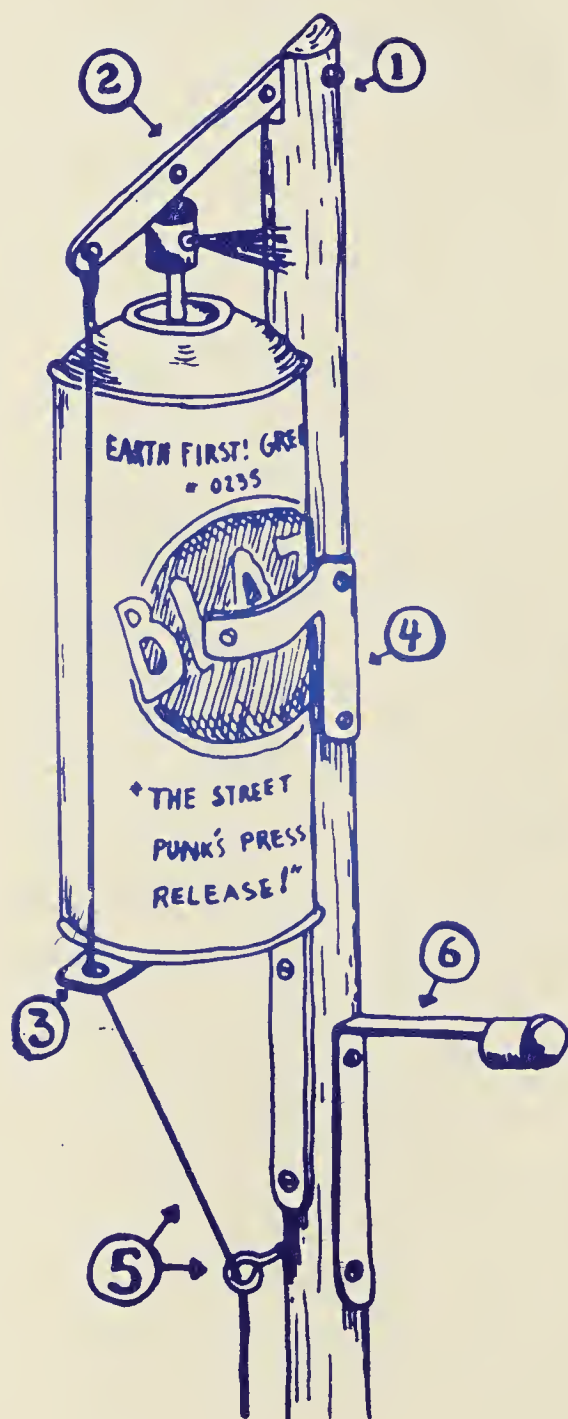 1
2
EARTH FIRST! GRE
# 0235
BLA
4
"THE STREET
PUNK'S PRESS
RELEASE!"
6
3
5